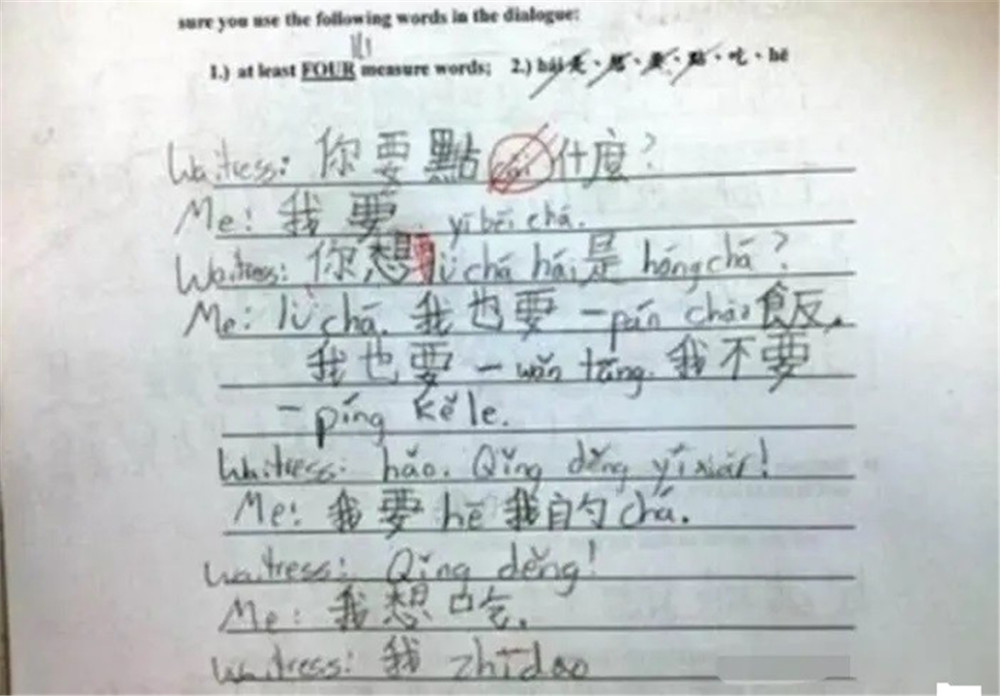 sure you use the following words in the dialogue:
1.) at least FOUR measure words; 2.) hái是、想、要、點、吃、hē
Waitress: 你要點cài什麼?
Me: 我要 yī bēi chá.
Waitress: 你想要lǜ chá hái是 hóng chá?
Me: lǜ chá. 我也要一pán chǎo飯.
我也要一wǎn tāng. 我不要
一píng kě le.
Waitress: hǎo. Qǐng děng yíxiàr!
Me: 我要 hē 我的 chá.
Waitress: Qǐng děng!
Me: 我想吃.
Waitress: 我 zhīdao